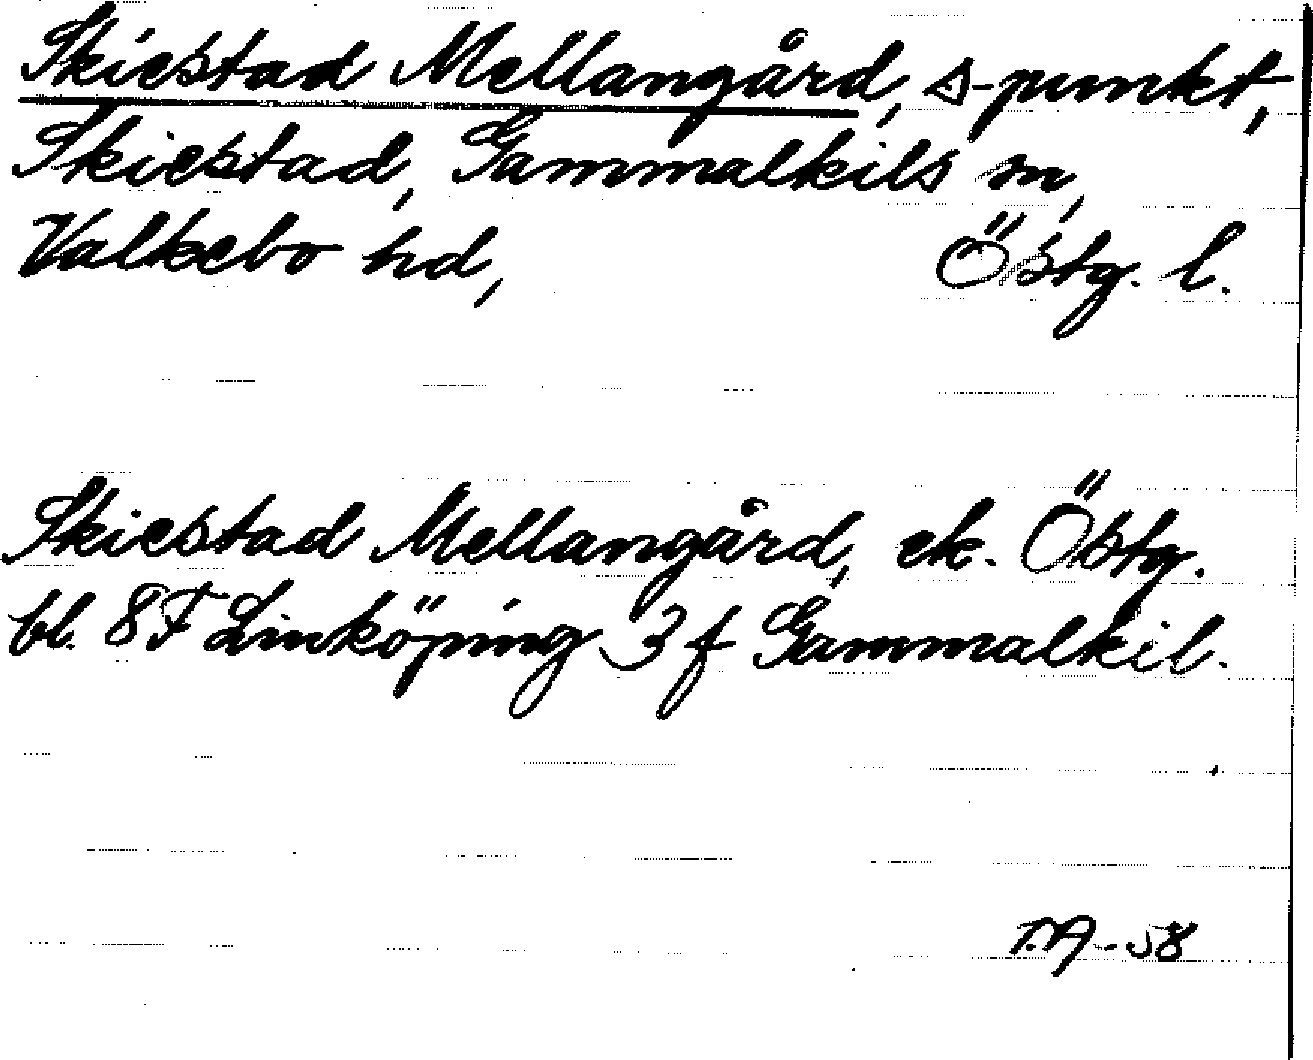 Skiestad Mellangård, △-punkt,
Skiestad, Gammalkils sn,
Valkebo hd, Östg. l.
Skiestad Mellangård, ek. Östg.
bl. 8F Linköping 3 f Gammalkil.
T.A-58